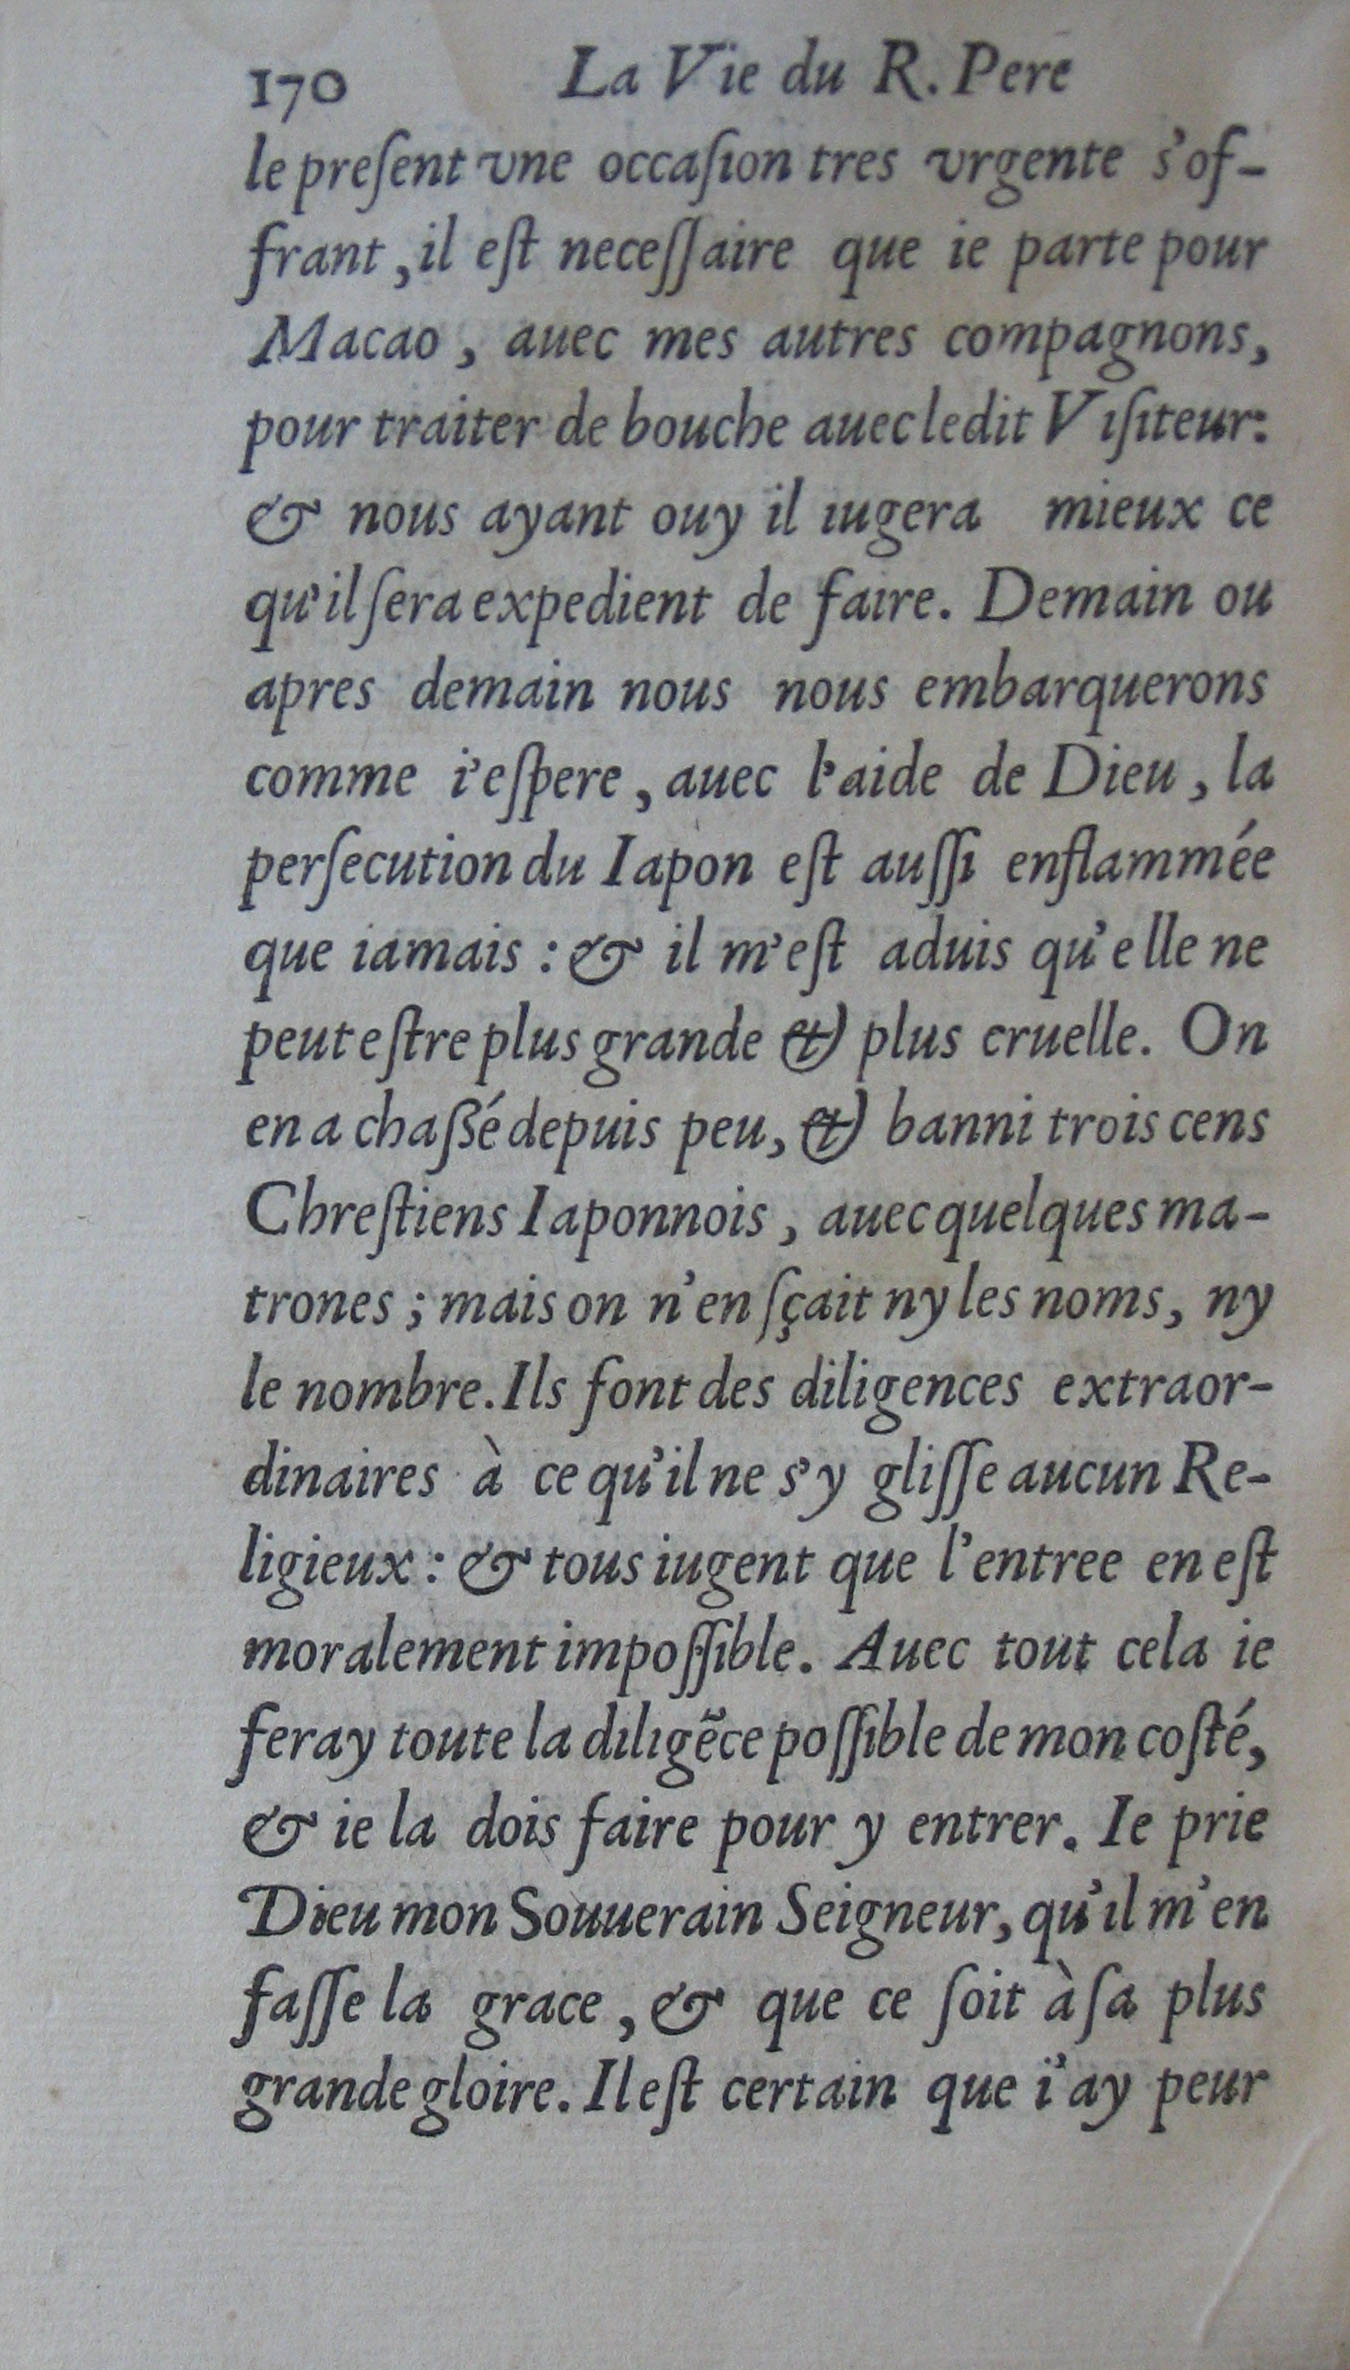 170 La Vie du R. Pere
le preſent vne occaſion tres vrgente s'of-
frant, il eſt neceſſaire que ie parte pour
Macao, auec mes autres compagnons,
pour traiter de bouche auec ledit Viſiteur:
& nous ayant ouy il iugera mieux ce
qu'il ſera expedient de faire. Demain ou
apres demain nous nous embarquerons
comme i'eſpere, auec l'aide de Dieu, la
perſecution du Iapon eſt auſſi enflammée
que iamais : & il m'eſt aduis qu'elle ne
peut eſtre plus grande & plus cruelle. On
en a chaßé depuis peu, & banni trois cens
Chreſtiens Iaponnois, auec quelques ma-
trones ; mais on n'en ſçait ny les noms, ny
le nombre. Ils font des diligences extraor-
dinaires à ce qu'il ne s'y gliſſe aucun Re-
ligieux : & tous iugent que l'entree en eſt
moralement impoſſible. Auec tout cela ie
feray toute la diligẽce poſſible de mon coſté,
& ie la dois faire pour y entrer. Ie prie
Dieu mon Souuerain Seigneur, qu'il m'en
faſſe la grace, & que ce ſoit à ſa plus
grande gloire. Il eſt certain que i'ay peur